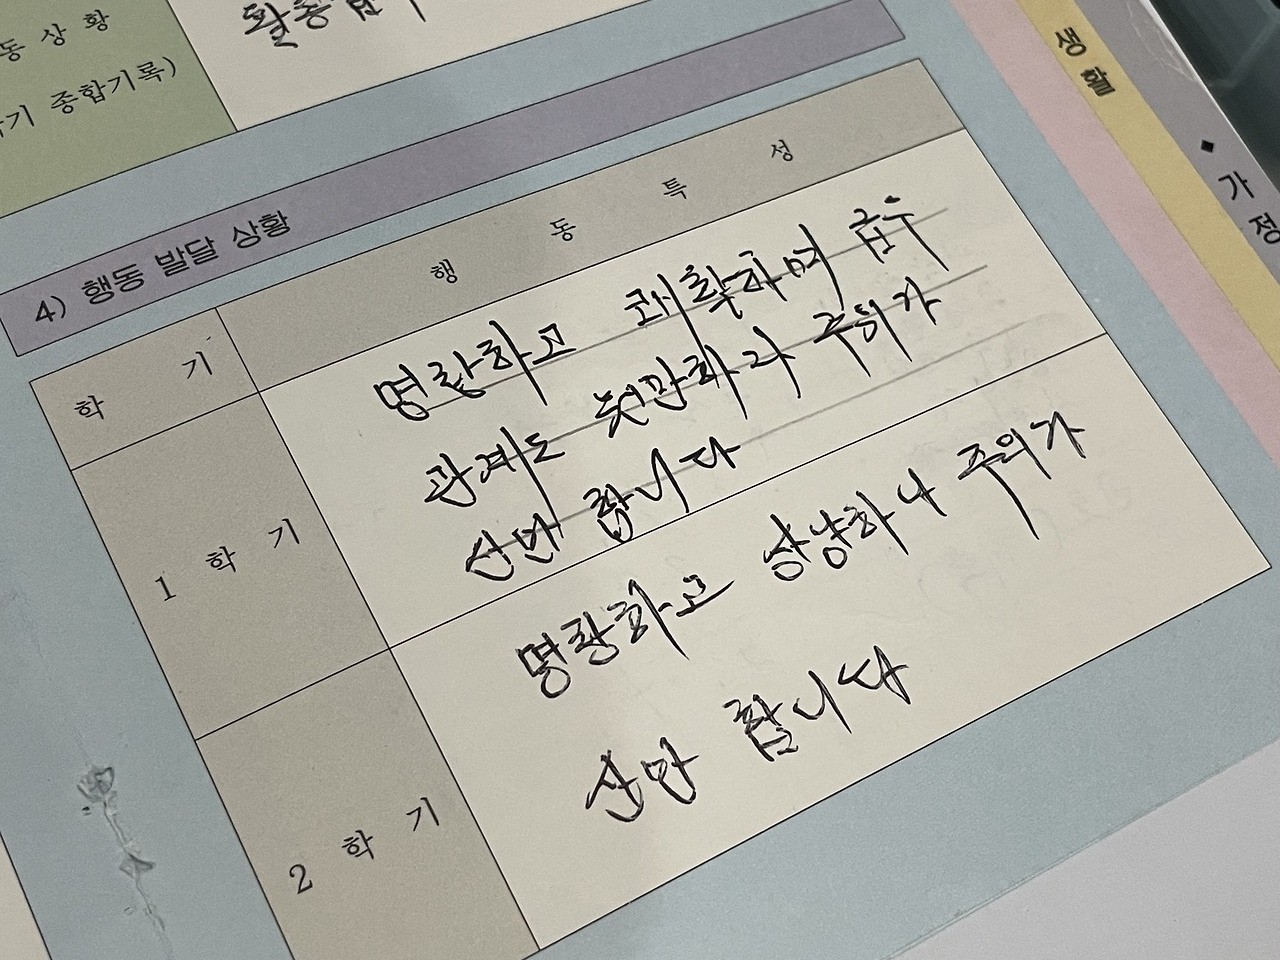 동 상 황
기 종합기록)
활동
4) 행동 발달 상황
학 기
행 동 특 성
1 학 기
명랑하고 쾌활하며 급우
관계도 원만하나 주의가
산만 합니다
2 학 기
명랑하고 상냥하나 주의가
산만 합니다
생 활
◆ 가 정